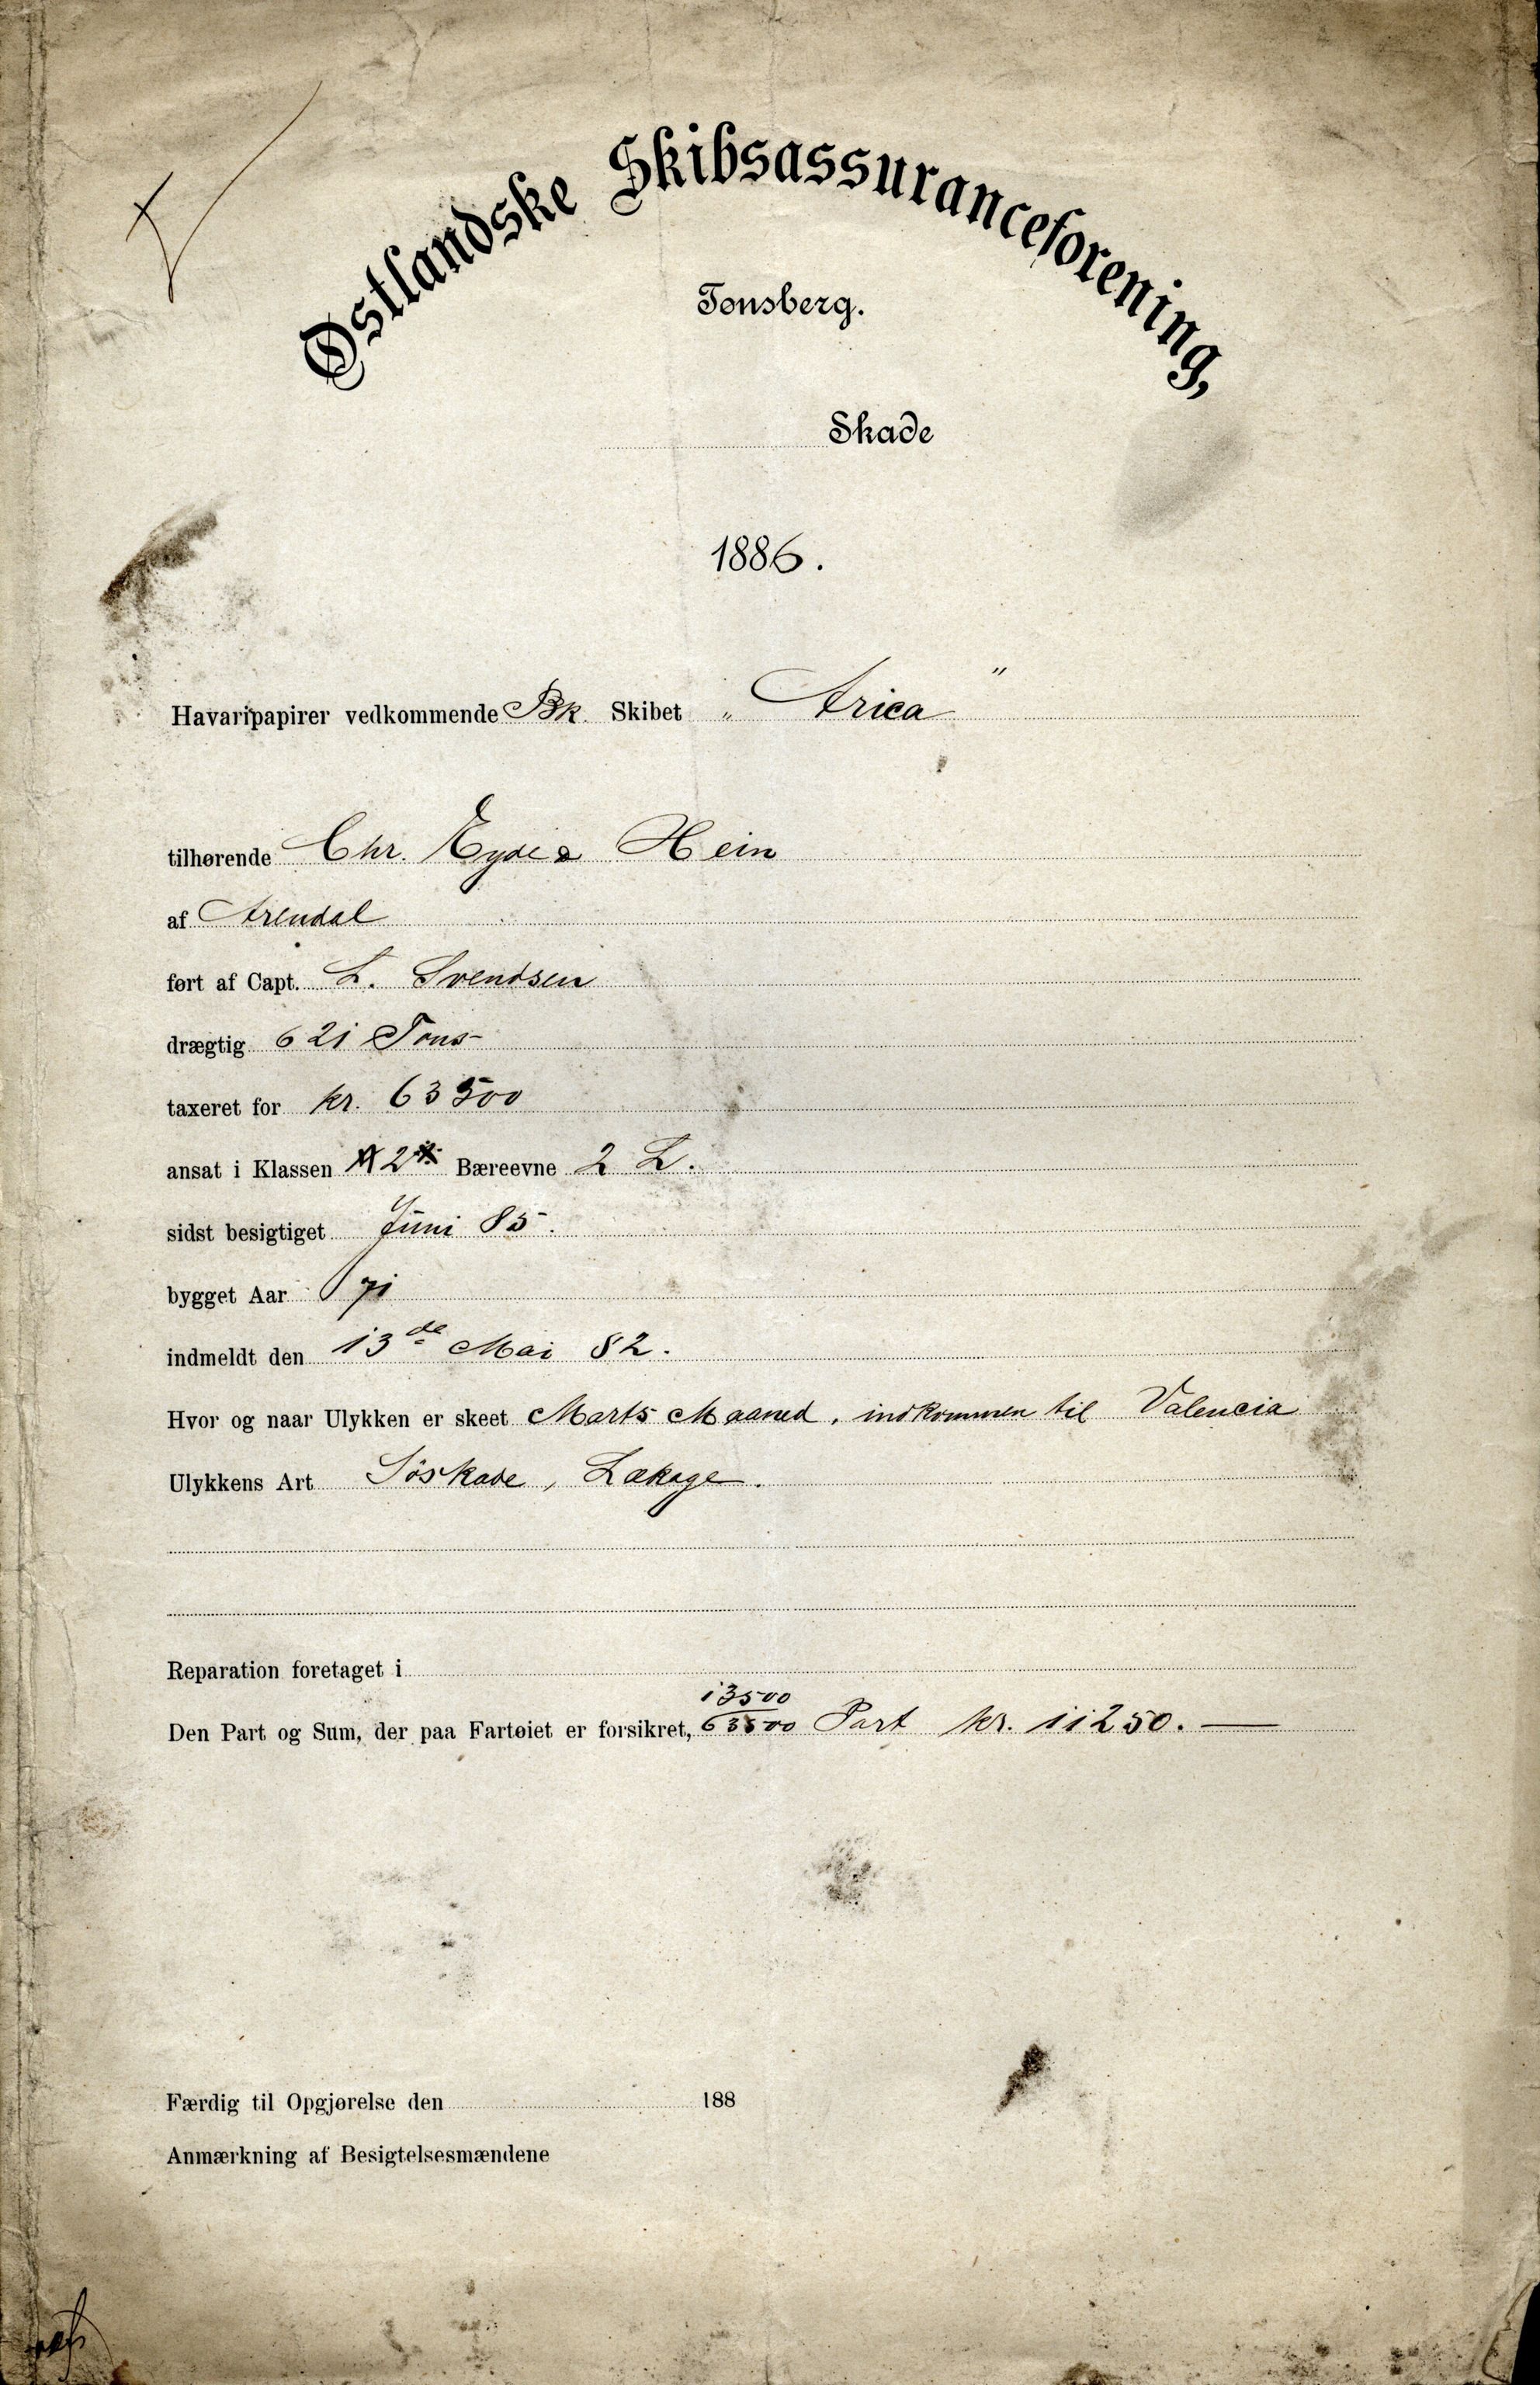 Østlandske Skibsassuranceforening,
Tønsberg.
Skade
1886.
Havaripapirer vedkommende Bk. Skibet „Arica"
tilhørende Chr. Eyde & Hein
af Arendal
ført af Capt. L. Svendsen
drægtig 621 Tons
taxeret for kr. 63500
ansat i Klassen A2 Bæreevne 2 L.
sidst besigtiget Juni 85.
bygget Aar 71
indmeldt den 13de Mai 82.
Hvor og naar Ulykken er skeet Marts Maaned, indkommen til Valencia
Ulykkens Art Søskade, Lækage.
Reparation foretaget i
Den Part og Sum, der paa Fartøiet er forsikret, 13500/63500 Part kr. 11250.—
Færdig til Opgjørelse den 188
Anmærkning af Besigtelsesmændene